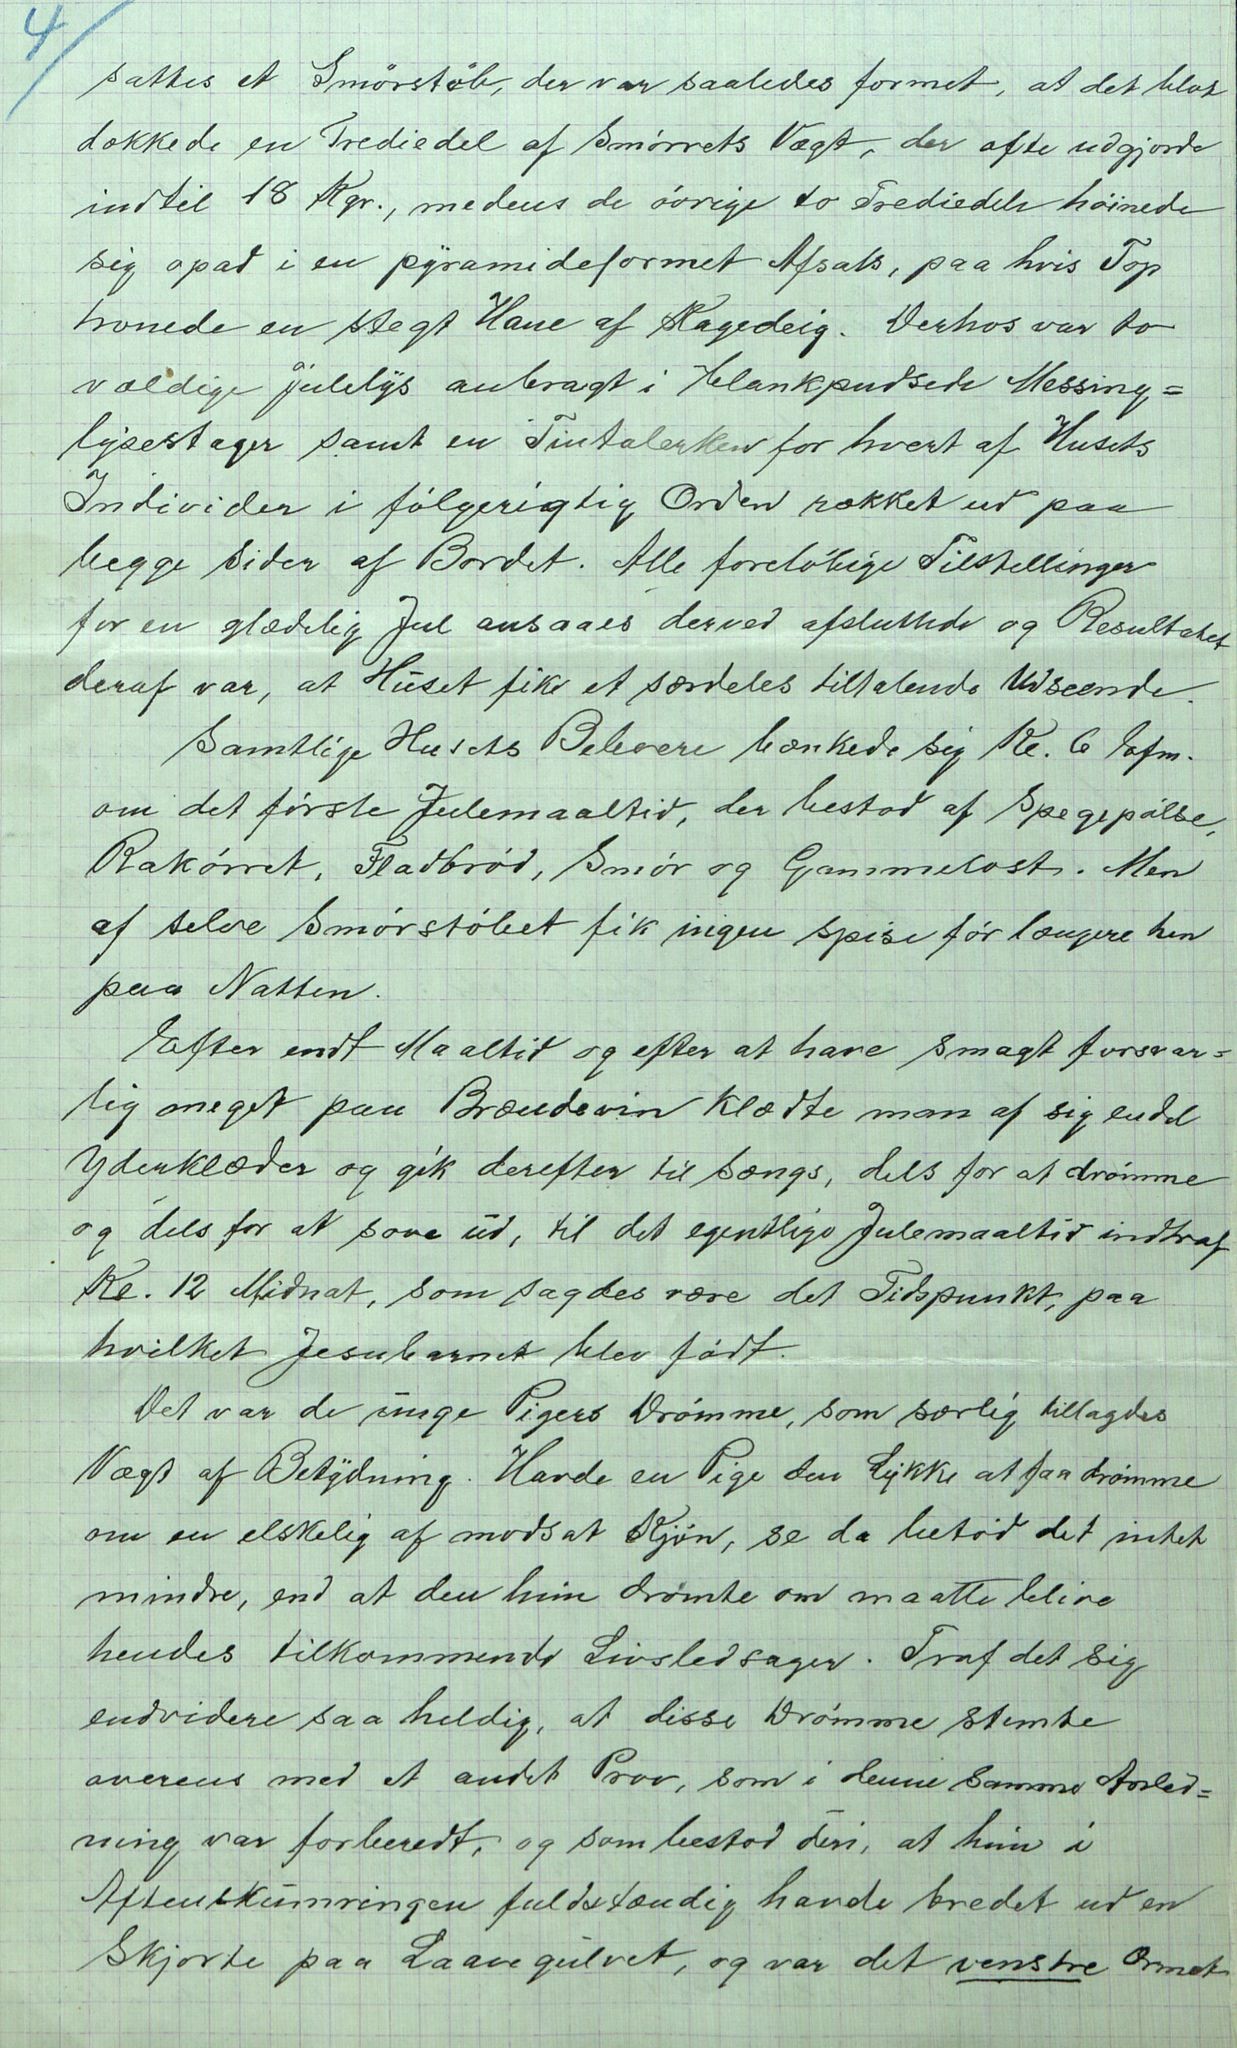 4/
sattes et Smörstöb, der var saaledes formet, at det blot
dækkede en Trediedel af Smörrets Vægt, der ofte udgjorde
indtil 18 Kgr., medens de övrige to Trediedele höinede
sig opad i en pyramideformet Afsats, paa hvis Top
tronede en stegt Hane af Kagedeig. Derhos var to
vældige Julelys anbragt i blankpudsede Messing=
lysestager samt en Tintalerken for hvert af Husets
Individer i fölgerigtig Orden rækket ud paa
begge Sider af Bordet. Alle forelöbige Tilstellinger
for en glædelig Jul ansaaes derved afsluttede og Resultatet
deraf var, at Huset fik et særdeles tiltalende Udseende.
Samtlige Husets Beboere bænkede sig Kl. 6 Efm.
om det förste Julemaaltid, der bestod af Spegepölse,
Rakörret, Fladbröd, Smör og Gammelost. Men
af selve Smörstöbet fik ingen spise för længere hen
paa Natten.
Efter endt Maaltid og efter at have smagt forsvar=
lig meget paa Brændevin klædte man af sig endel
Yderklæder og gik derefter til sengs, dels for at drömme
og dels for at sove ud, til det egentlige Julemaaltid indtraf
Kl. 12 Midnat, som sagdes være det Tidspunkt, paa
hvilket Jesubarnet blev födt.
Det var de unge Pigers Drömme, som særlig tillagdes
Vægt af Betydning. Havde en Pige den Lykke at faa drömme
om en elskelig af modsat Kjön, se da betöd det intet
mindre, end at den hun drömte om maatte blive
hendes tilkommende Livsledsager. Traf det sig
endvidere saa heldig, at disse Drömme stemte
overens med et andet Prov, som i denne samme Anled=
ning var forberedt, og som bestod deri, at hun i
Aftenskumringen fuldstændig havde bredet ud en
Skjorte paa Laavegulvet, og var det venstre Ormet